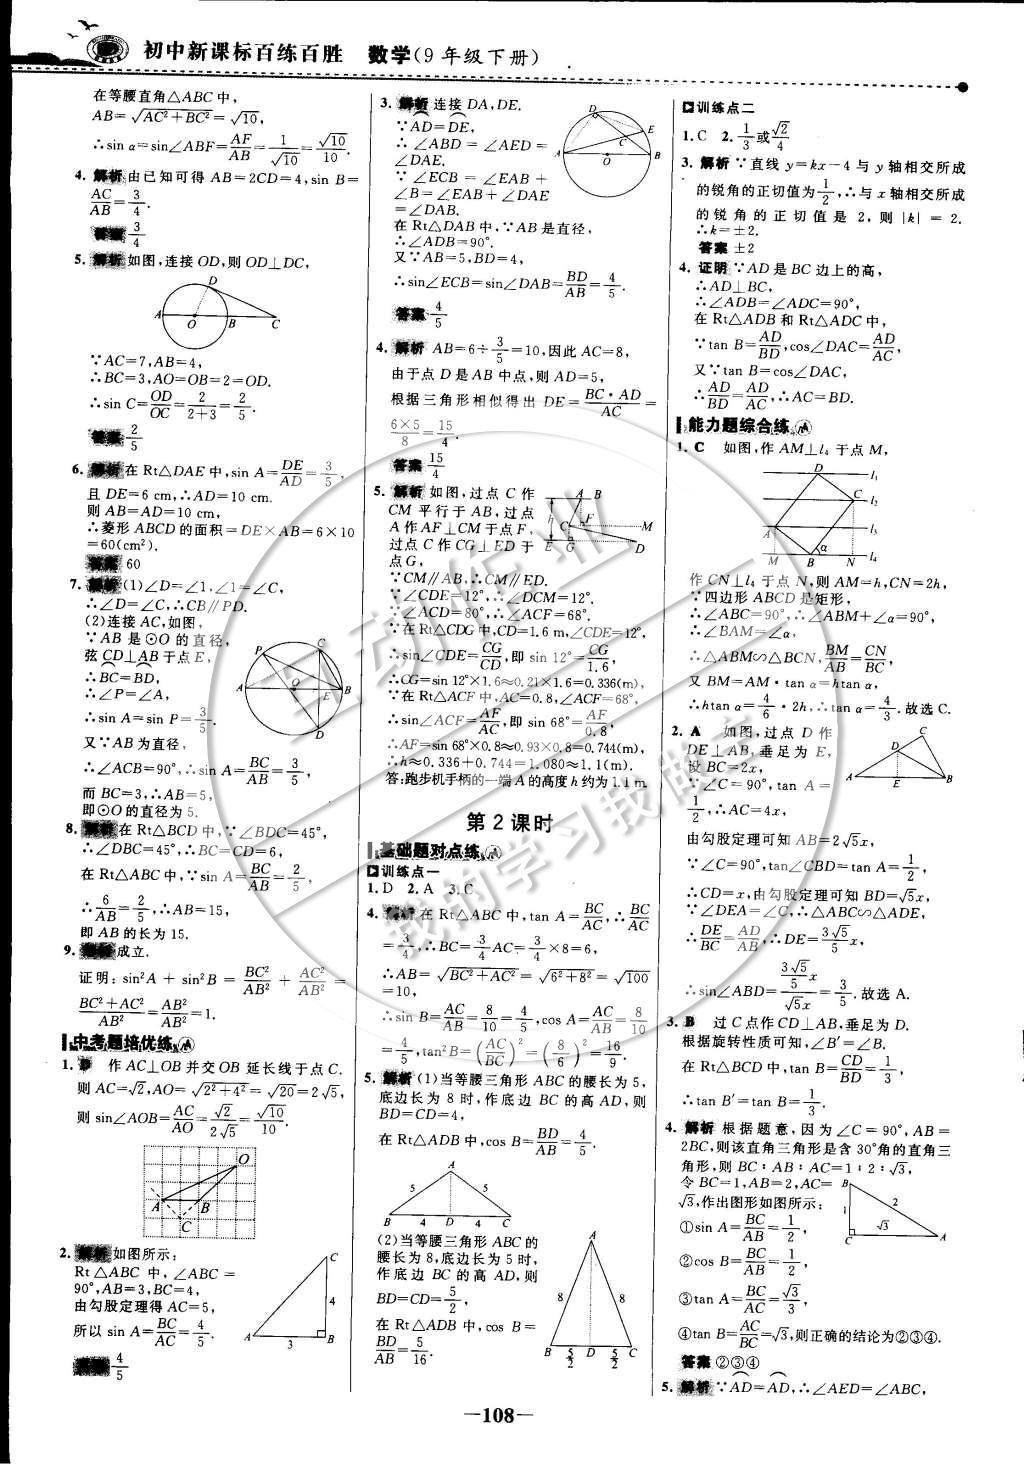 初中新课标百练百胜 数学(9年级下册)
在等腰直角△ABC中,
AB=√(AC²+BC²)=√10,
∴sin α=sin∠ABF=AF/AB=1/√10=√10/10.
4. 解析 由已知可得AB=2CD=4,sin B=
AC/AB=3/4.
答案 3/4
5. 解析 如图,连接OD,则OD⊥DC,
A O B C D
∵AC=7,AB=4,
∴BC=3,AO=OB=2=OD.
∴sin C=OD/OC=2/(2+3)=2/5.
答案 2/5
6. 解析 在Rt△DAE中,sin A=DE/AD=3/5,
且DE=6 cm,∴AD=10 cm.
则AB=AD=10 cm,
∴菱形ABCD的面积=DE×AB=6×10
=60(cm²).
答案 60
7. 解析 (1)∠D=∠1,∠1=∠C,
∴∠D=∠C,∴CB∥PD.
(2)连接AC,如图,
∵AB是⊙O的直径,
弦CD⊥AB于点E,
∴BC=BD,
∴∠P=∠A,
∴sin A=sin P=3/5.
又∵AB为直径,
∴∠ACB=90°,∴sin A=BC/AB=3/5,
而BC=3,∴AB=5,
即⊙O的直径为5.
8. 解析 在Rt△BCD中,∵∠BDC=45°,
∴∠DBC=45°,∴BC=CD=6,
在Rt△ABC中,∵sin A=BC/AB=2/5,
∴6/AB=2/5,∴AB=15,
即AB的长为15.
9. 解析 成立.
证明:sin²A+sin²B=BC²/AB²+AC²/AB²=
(BC²+AC²)/AB²=AB²/AB²=1.
中考题培优练
1. B 作AC⊥OB并交OB延长线于点C.
则AC=√2,AO=√(2²+4²)=√20=2√5,
则sin∠AOB=AC/AO=√2/(2√5)=√10/10.
O A B C
2. 解析 如图所示:
Rt△ABC中,∠ABC=
90°,AB=3,BC=4,
由勾股定理得AC=5,
所以sin A=BC/AC=4/5.
C 4 A 3 B
答案 4/5
3. 解析 连接DA,DE.
∵AD=DE,
∴∠ABD=∠AED=
∠DAE.
∵∠ECB=∠EAB+
∠B=∠EAB+∠DAE
=∠DAB.
在Rt△DAB中,∵AB是直径,
∴∠ADB=90°.
又∵AB=5,BD=4,
∴sin∠ECB=sin∠DAB=BD/AB=4/5.
答案 4/5
4. 解析 AB=6÷3/5=10,因此AC=8,
由于点D是AB中点,则AD=5,
根据三角形相似得出DE=BC·AD/AC=
6×5/8=15/4.
答案 15/4
5. 解析 如图,过点C作
CM平行于AB,过点
A作AF⊥CM于点F,
过点C作CG⊥ED于
点G,
∵CM∥AB,∴CM∥ED.
∵∠CDE=12°,∴∠DCM=12°.
∵∠ACD=80°,∴∠ACF=68°.
∵在Rt△CDG中,CD=1.6 m,∠CDE=12°,
∴sin∠CDE=CG/CD,即sin 12°=CG/1.6,
∴CG=sin 12°×1.6≈0.21×1.6=0.336(m),
∵在Rt△ACF中,AC=0.8,∠ACF=68°,
∴sin∠ACF=AF/AC,即sin 68°=AF/0.8,
∴AF=sin 68°×0.8≈0.93×0.8=0.744(m),
∴h≈0.336+0.744=1.080≈1.1(m).
答:跑步机手柄的一端A的高度h约为1.1 m.
第2课时
基础题对点练
训练点一
1. D 2. A 3. C
4. 解析 在Rt△ABC中,tan A=BC/AC,∴BC/AC
=3/4,∴BC=3/4AC=3/4×8=6,
∴AB=√(BC²+AC²)=√(6²+8²)=√100
=10,
∴sin B=AC/AB=8/10=4/5,cos A=AC/AB=8/10
=4/5,tan²B=(AC/BC)²=(8/6)²=16/9.
5. 解析 (1)当等腰三角形ABC的腰长为5,
底边长为8时,作底边BC的高AD,则
BD=CD=4,
在Rt△ADB中,cos B=BD/AB=4/5.
A 5 5 B 4 D 4 C
(2)当等腰三角形ABC的
腰长为8,底边长为5时,
作底边BC的高AD,则
BD=CD=5/2,
在Rt△ADB中,cos B=
BD/AB=5/16.
A 8 8 B 5/2 D 5/2 C
—108—
训练点二
1. C 2. 1/3或√2/4
3. 解析 ∵直线y=kx-4与y轴相交所成
的锐角的正切值为1/2,∴与x轴相交所成
的锐角的正切值是2,则|k|=2.
∴k=±2.
答案 ±2
4. 证明 ∵AD是BC边上的高,
∴AD⊥BC,
∴∠ADB=∠ADC=90°,
在Rt△ADB和Rt△ADC中,
∵tan B=AD/BD,cos∠DAC=AD/AC,
又∵tan B=cos∠DAC,
∴AD/BD=AD/AC,∴AC=BD.
能力题综合练
1. C 如图,作AM⊥l₄于点M,
D l₁ C l₂ A l₃ M B α N l₄
作CN⊥l₄于点N,则AM=h,CN=2h,
∵四边形ABCD是矩形,
∴∠ABC=90°,∴∠ABM+∠α=90°,
∴∠BAM=∠α,
∴△ABM∽△BCN,BM/AB=CN/BC,
又BM=AM·tan α=htan α,
∴htan α=4/6·2h,∴tan α=4/3.故选C.
2. A 如图,过点D作
DE⊥AB,垂足为E,
设BC=2x,
∵∠C=90°,tan A=
1/2,∴AC=4x,
由勾股定理可知AB=2√5x,
∵∠C=90°,tan∠CBD=tan A=1/2,
∴CD=x,由勾股定理可知BD=√5x,
∵∠DEA=∠C,∴△ABC∽△ADE,
∴DE/BC=AD/AB,∴DE=3√5/5x,
∴sin∠ABD=(3√5/5x)/(√5x)=3/5.故选A.
3. B 过C点作CD⊥AB,垂足为D.
根据旋转性质可知,∠B′=∠B.
在Rt△BCD中,tan B=CD/BD=1/3,
∴tan B′=tan B=1/3.
4. 解析 根据题意,因为∠C=90°,AB=
2BC,则该直角三角形是含30°角的直角三
角形,则BC∶AB∶AC=1∶2∶√3,
令BC=1,AB=2,AC=
√3,作出图形如图所示:
B 1 2 C √3 A
①sin A=BC/AB=1/2,
②cos B=BC/AB=1/2,
③tan A=BC/AC=√3/3,
④tan B=AC/BC=√3,则正确的结论为②③④.
答案 ②③④
5. 解析 ∵AD=AD,∴∠AED=∠ABC,